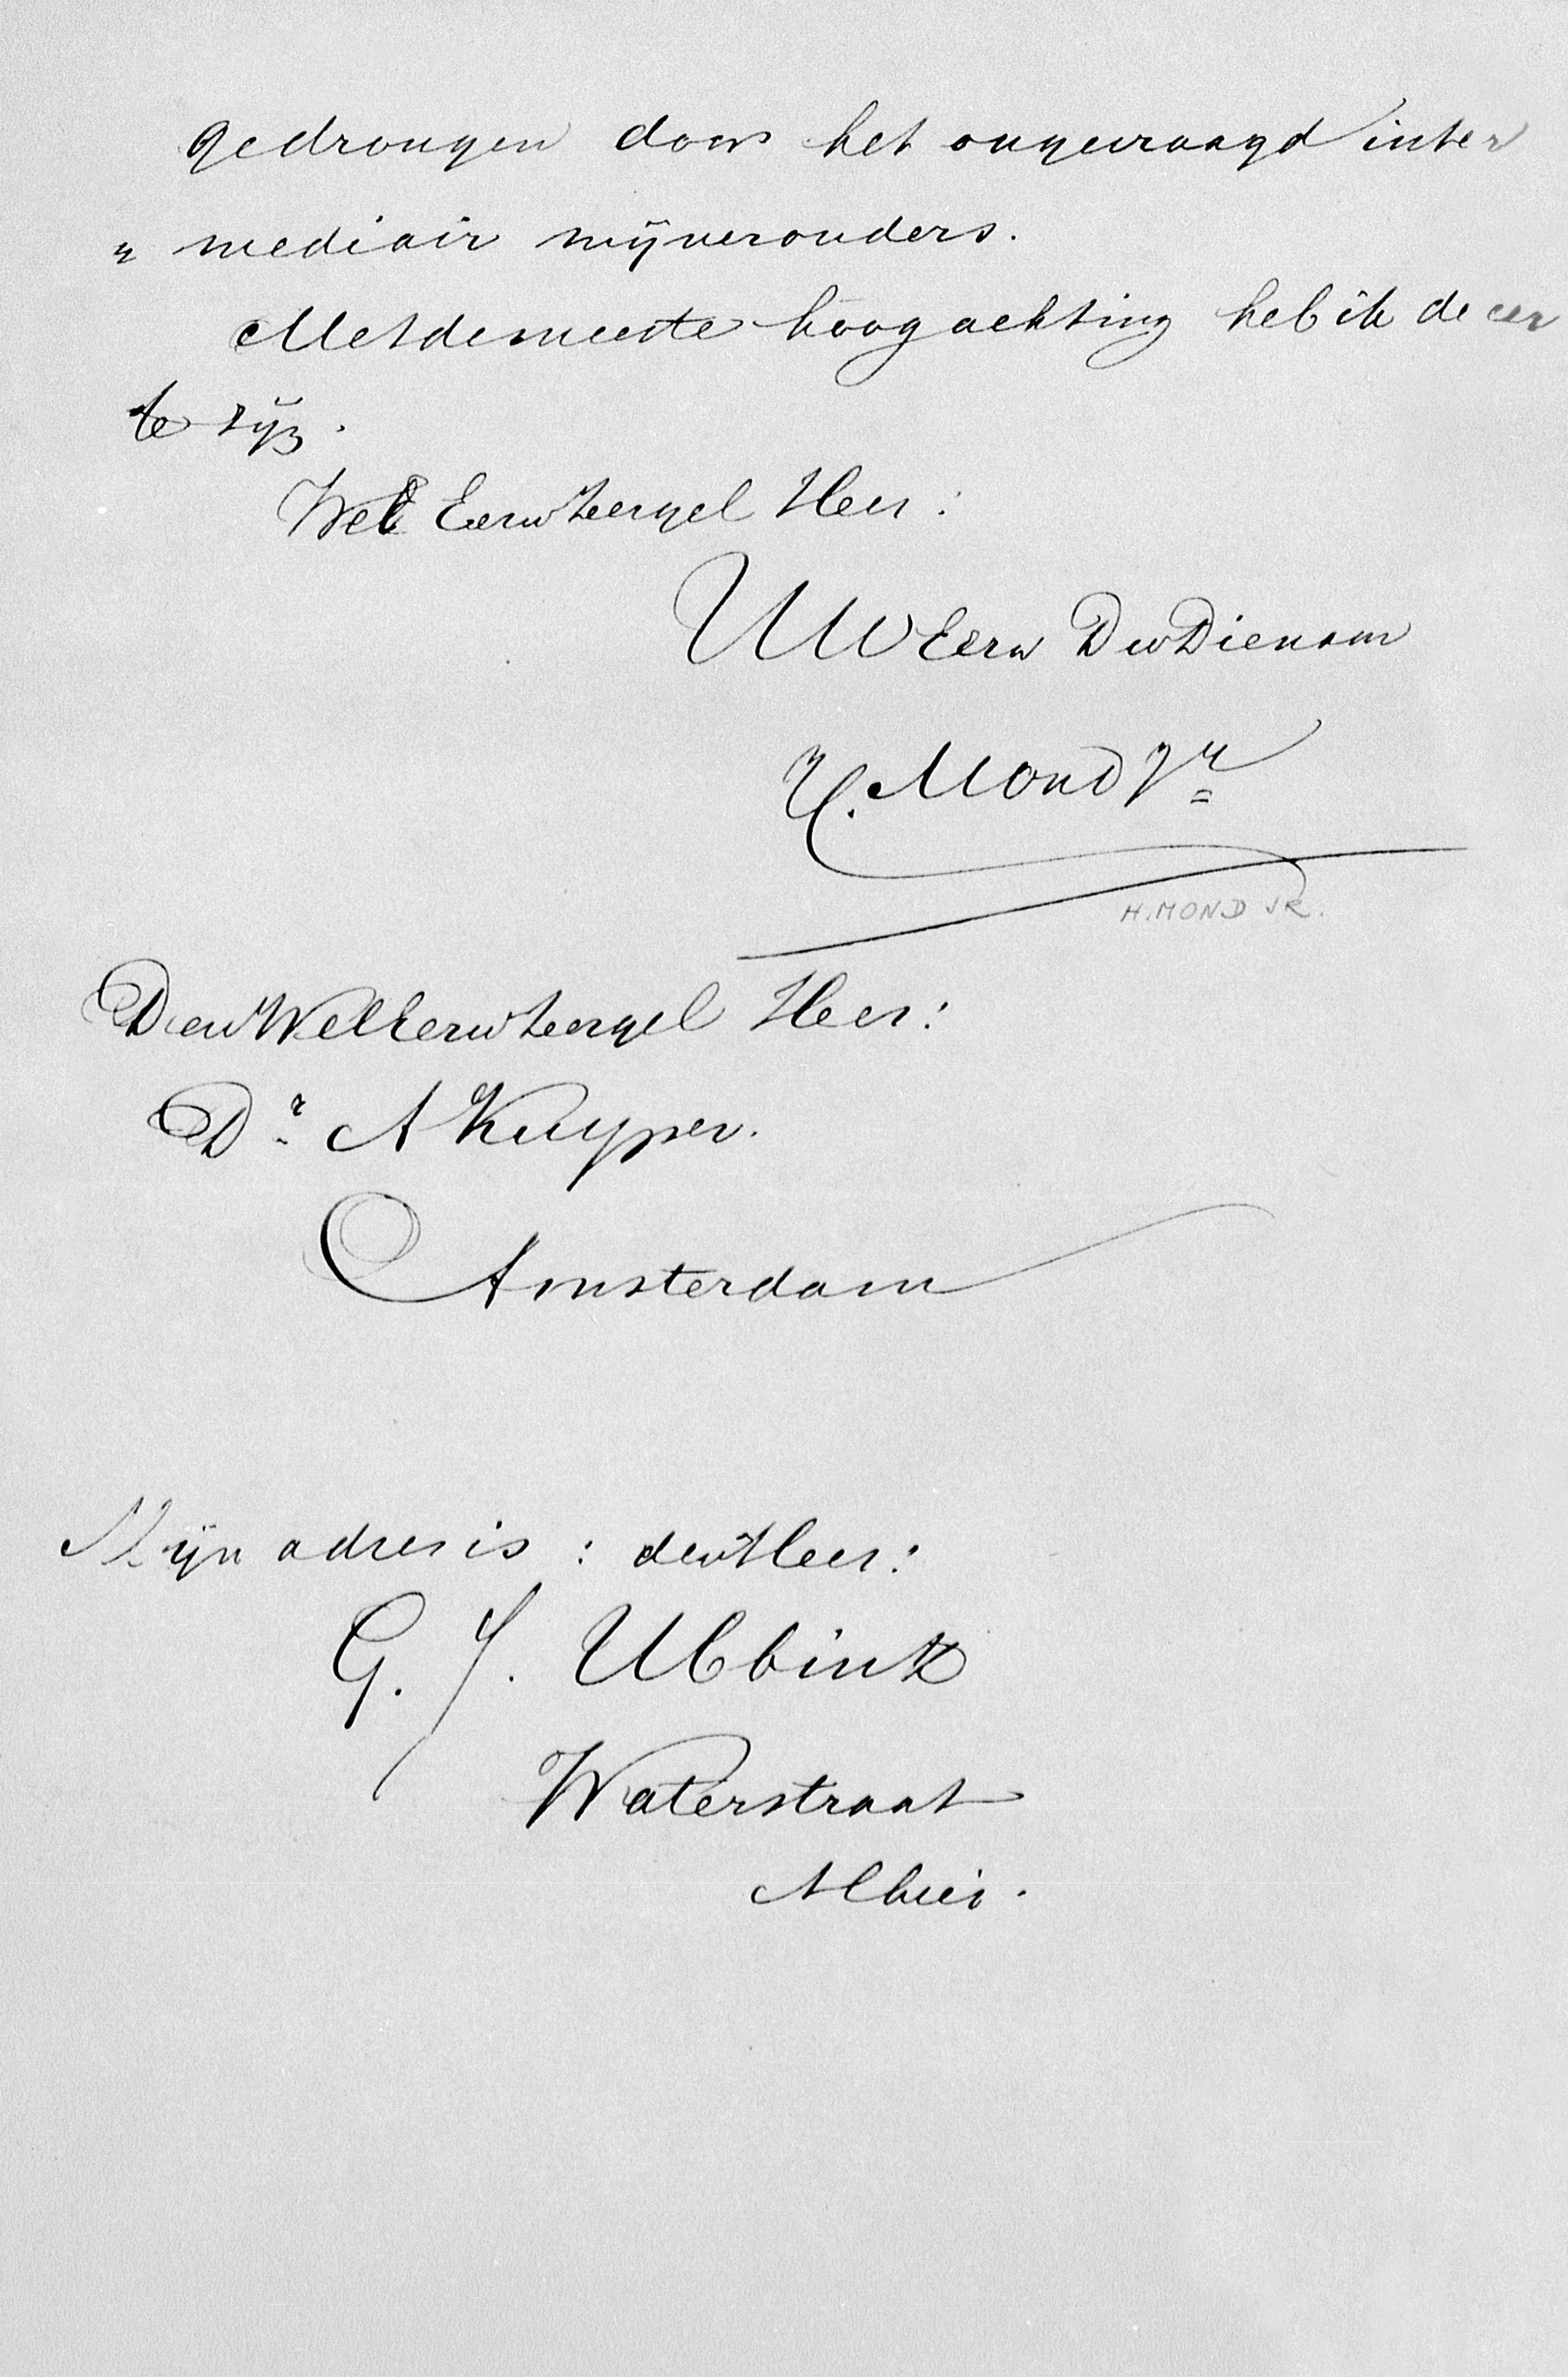 gedrongen door het ongevraagd inter
„ mediair mijner ouders.
Met de meeste hoogachting heb ik de eer
te zijn.
Wel Eerw Zeergel Heer:
UW Eerw Dw Dienaar
H. Mond Jr
H. MOND JR.
Den Wel Eerw Zeergel Heer:
Dr A Kuyper.
Amsterdam
Mijn adres is : den Heer:
G. J. Ubbink
Waterstraat
Alhier.